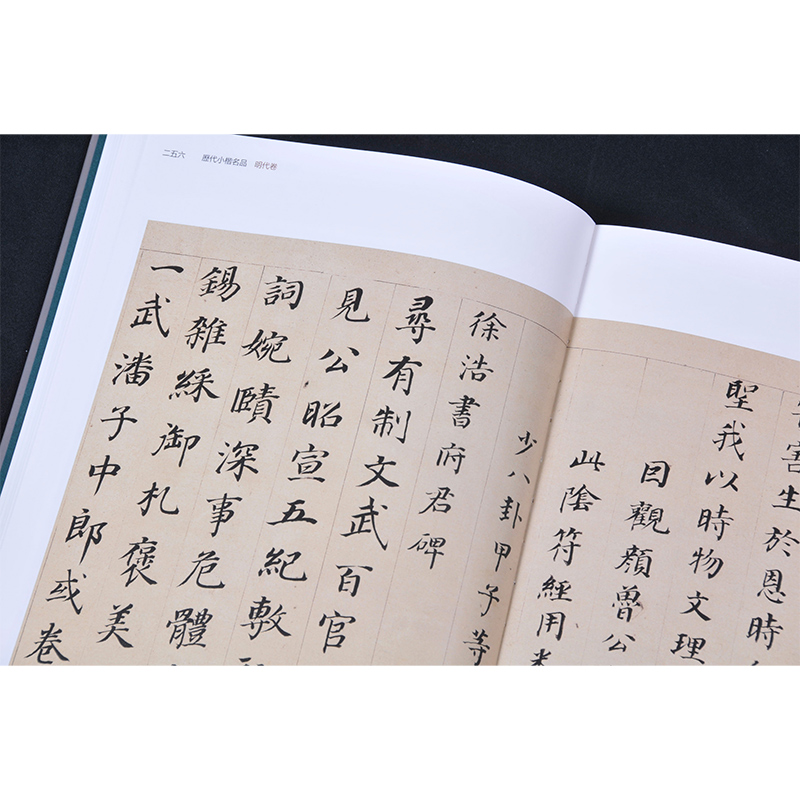 二五六 歷代小楷名品 明代卷
害生於恩時
聖我以時物文理
囙觀顏魯公
此陰符經用
少八卦甲子等
徐浩書府君碑
尋有制文武百官
見公昭宣五紀敷
詞婉賾深事危體
錫雜綵御札褒美
一武潘子中郎或卷